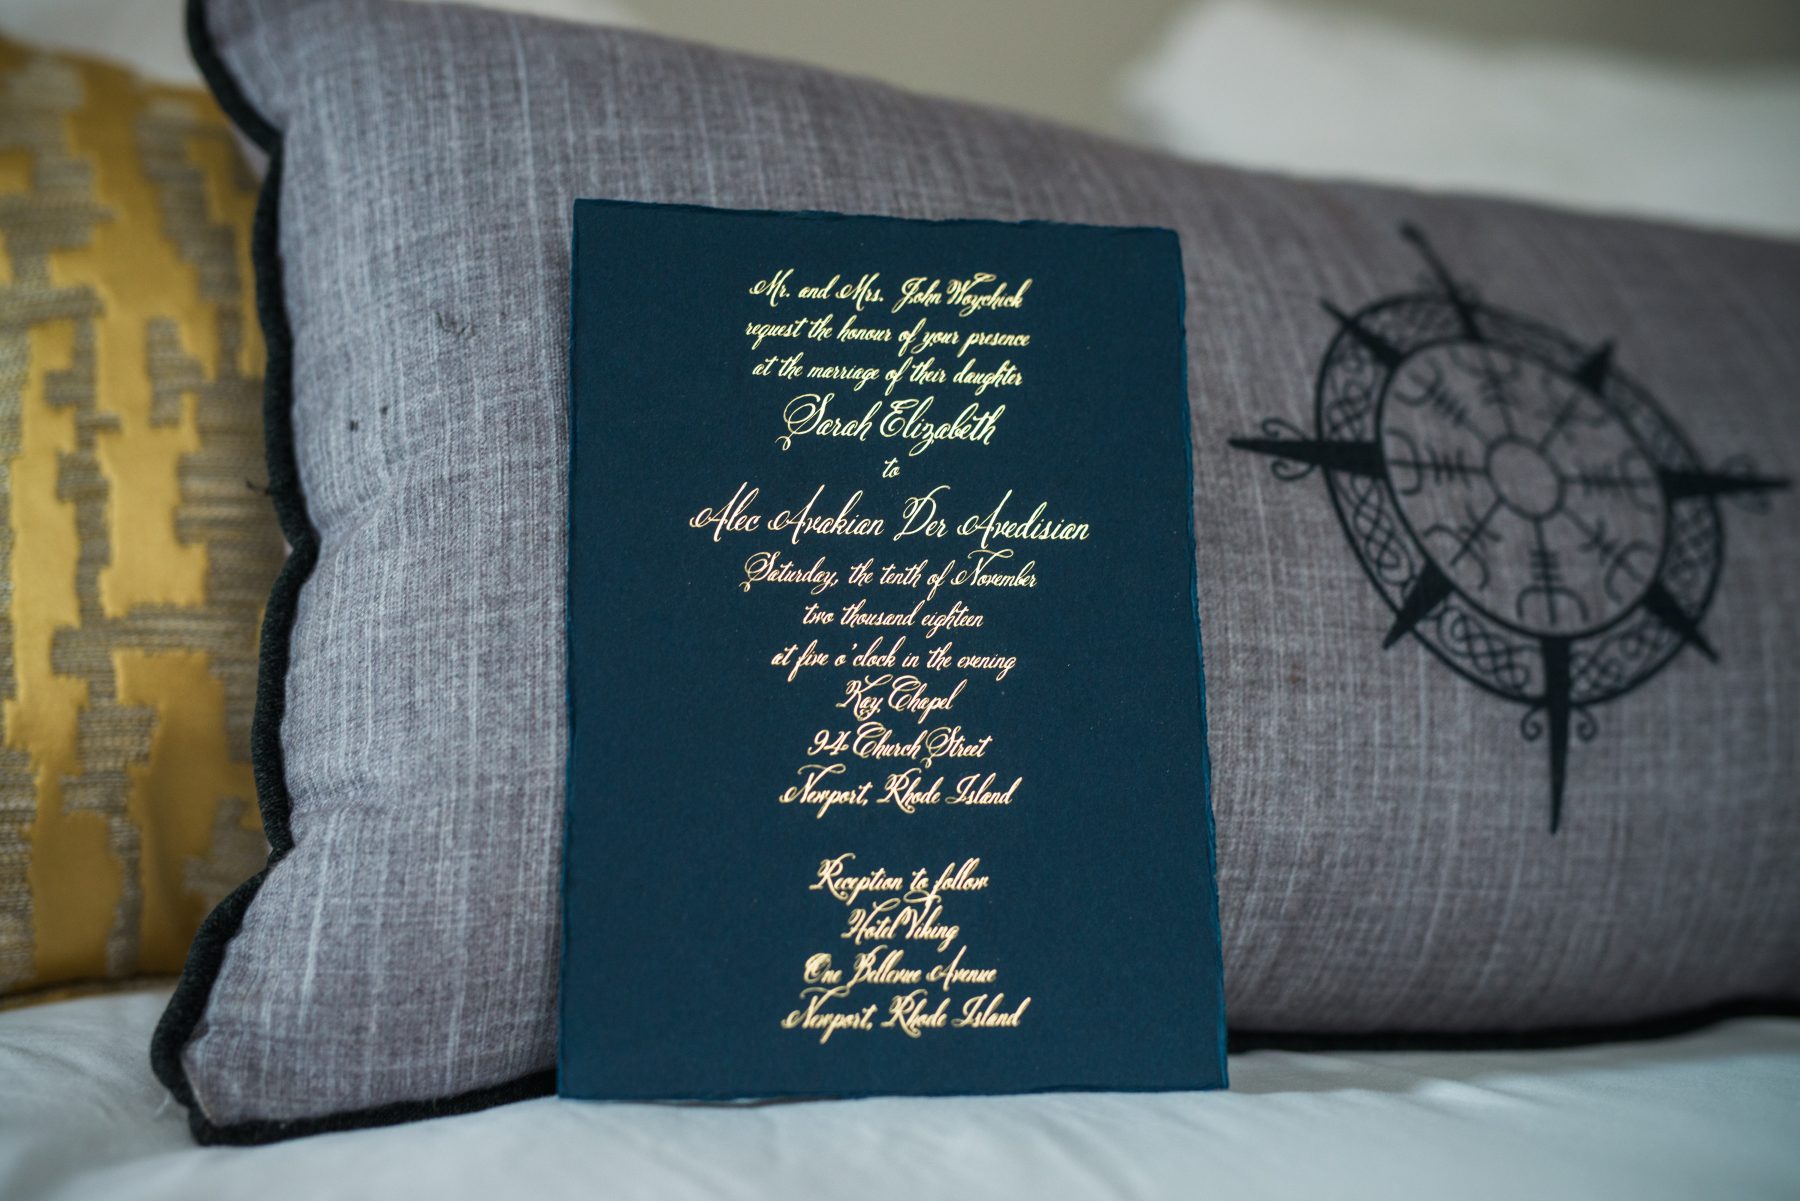 Mr. and Mrs. John Woychick
request the honour of your presence
at the marriage of their daughter
Sarah Elizabeth
to
Alec Avakian Der Avedisian
Saturday, the tenth of November
two thousand eighteen
at five o'clock in the evening
Kay Chapel
94 Church Street
Newport, Rhode Island
Reception to follow
Hotel Viking
One Bellevue Avenue
Newport, Rhode Island